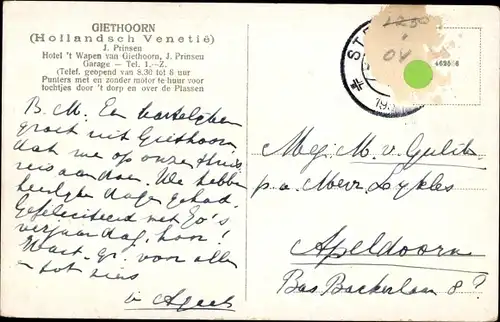 GIETHOORN
(Hollandsch Venetië)
J. Prinsen
Hotel 't Wapen van Giethoorn, J. Prinsen
Garage — Tel. 1.—Z.
(Telef. geopend van 8.30 tot 8 uur
Punters met en zonder motor te huur voor
tochtjes door 't dorp en over de Plassen
B. M. Een hartelijken
groet uit Giethoorn,
dat we op onze thuis
reis aandoen. We hebben
heerlijke dagen gehad.
Gefeliciteerd met Jo's
verjaardag, hoor!
Hart. gr. voor allen
tot ziens
Ageeth
ST
193
Mej. M. v. Gulik
p.a. Mevr. Lykles
Apeldoorn
Bas Backerlaan 8?